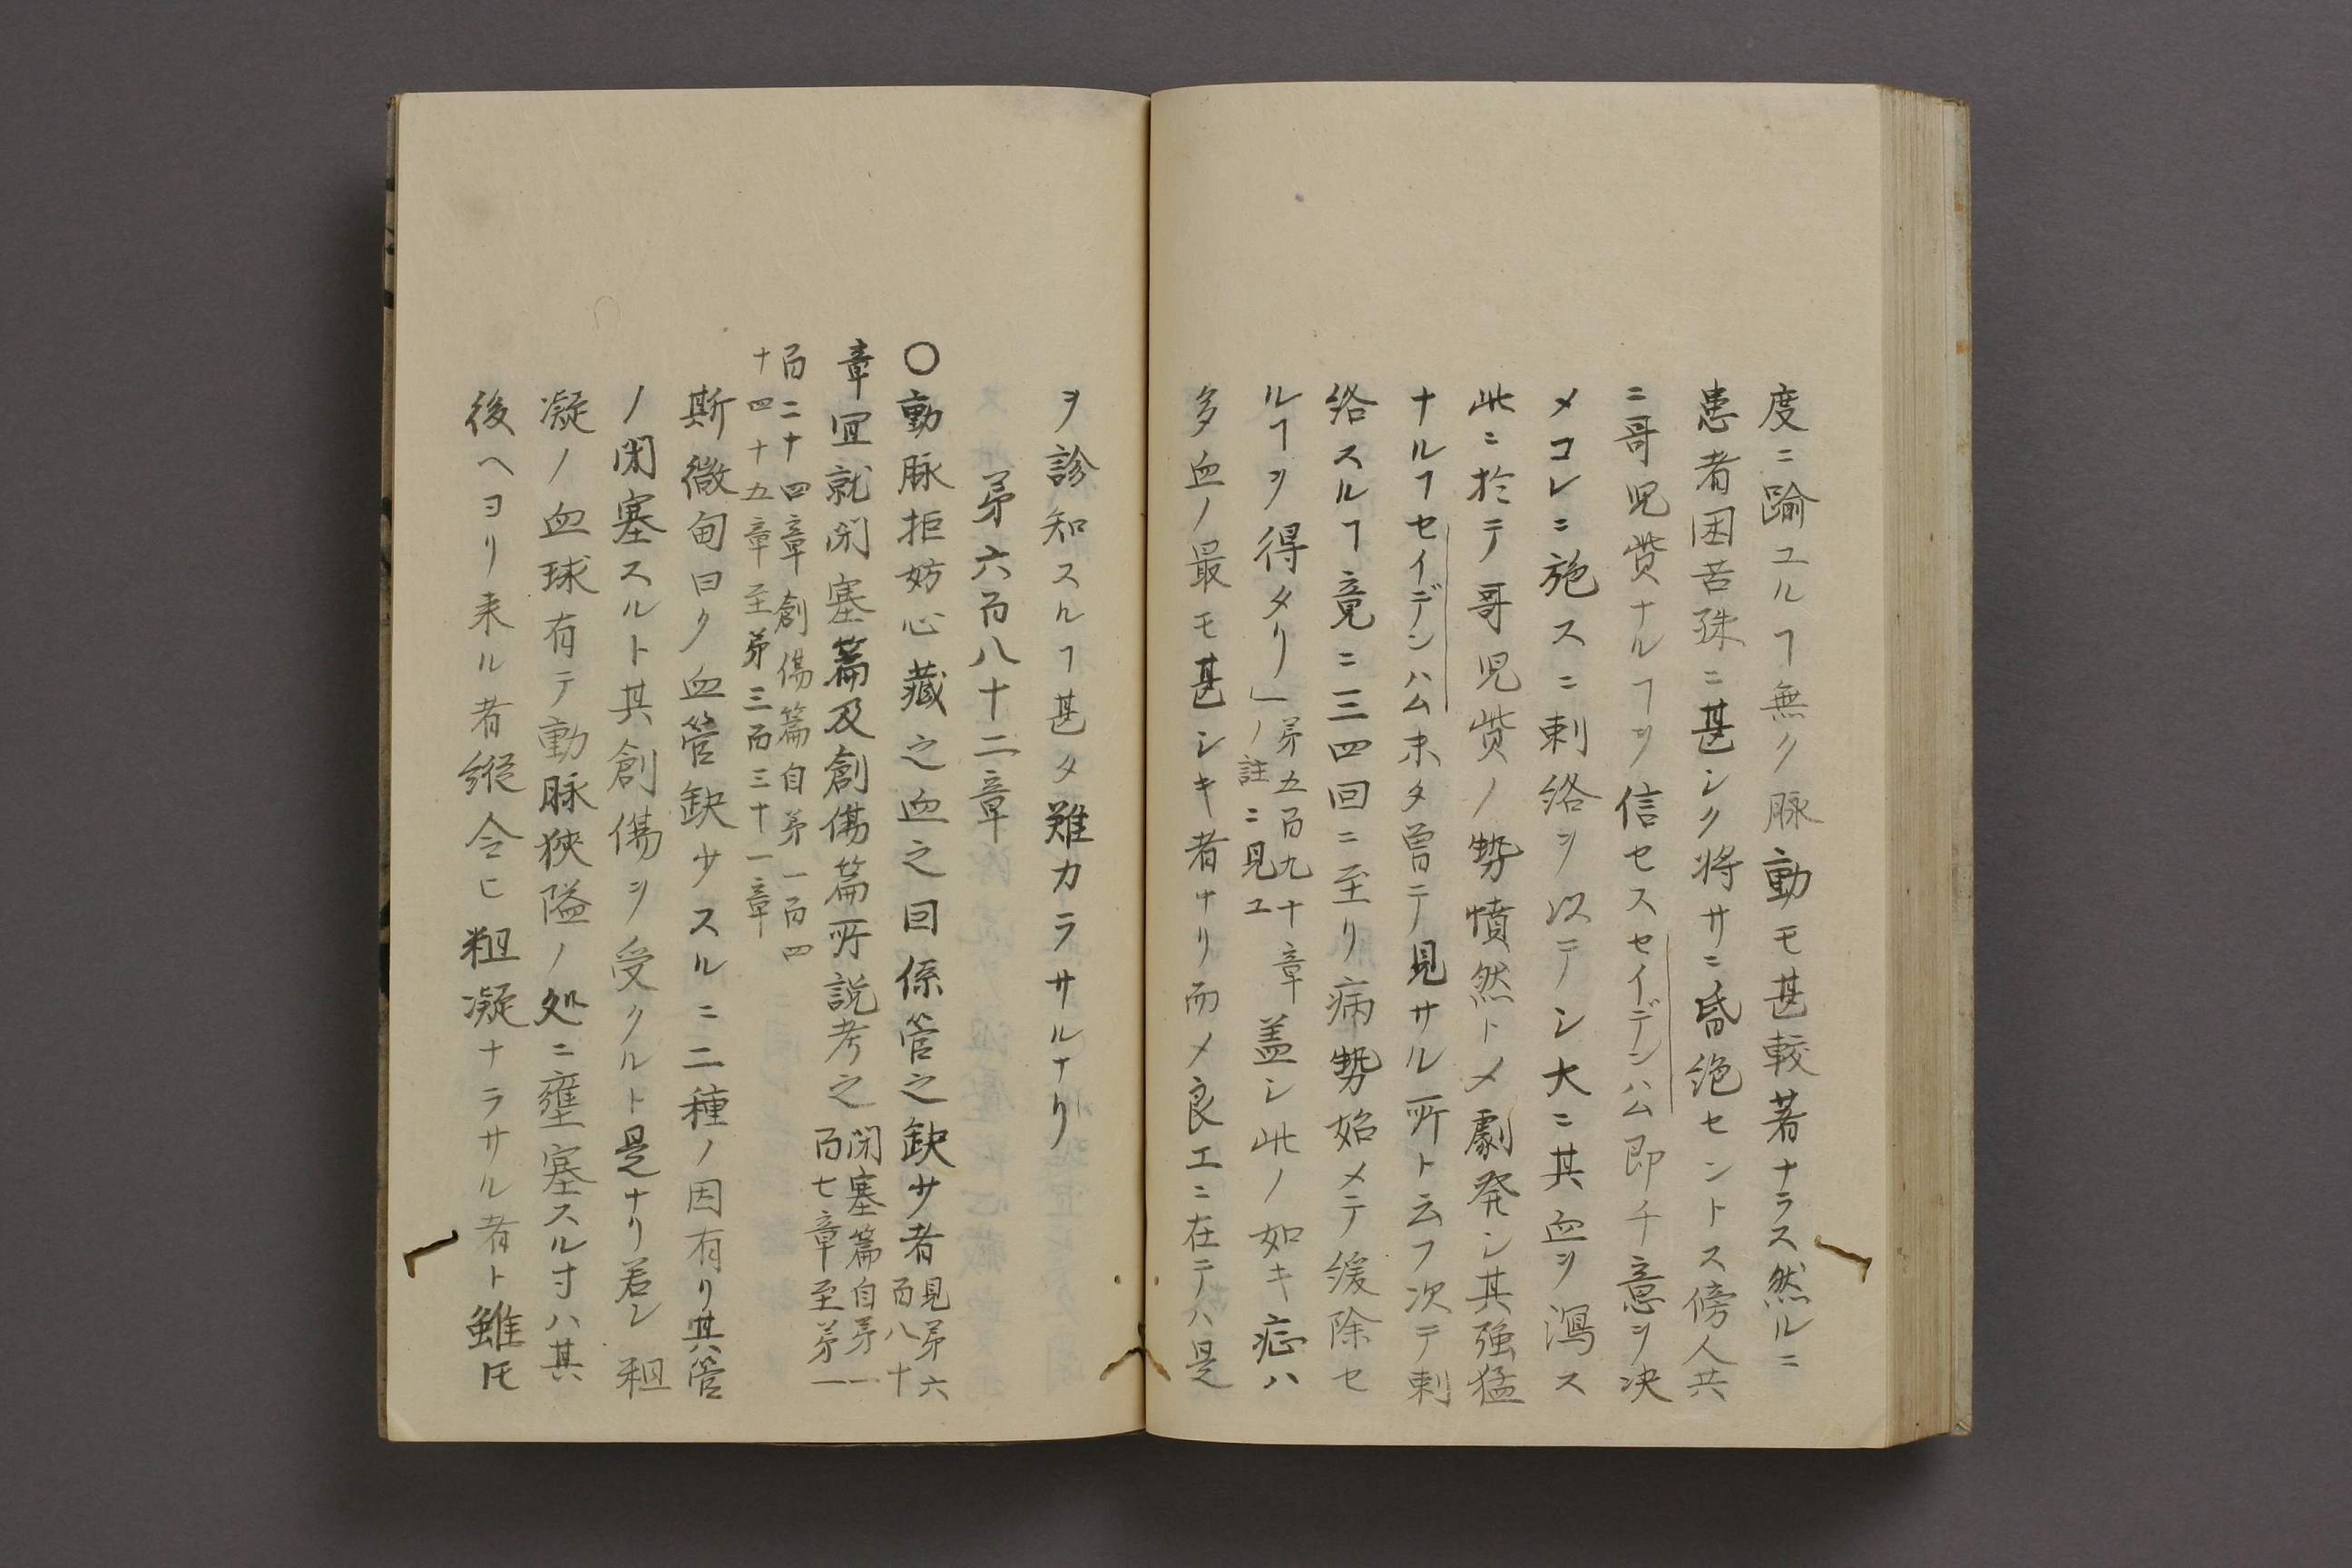 度ニ踰ユルヿ無ク脉動モ甚較著ナラス然ルニ
患者困苦殊ニ甚シク将サニ昏絶セントス傍人共
ニ哥児赀ナルヿヲ信セスセイデンハム即チ意ヲ决
メコレニ施スニ刺絡ヲ以テシ大ニ其血ヲ瀉ス
此ニ於テ哥児赀ノ勢憤然トメ劇発シ其強猛
ナルヿセイデンハム未タ曽テ見サル所ト云フ次テ刺
絡スルヿ竟ニ三四回ニ至リ病勢始メテ緩除セ
ルヿヲ得タリ」第五百九十章
ノ註ニ見ユ
蓋シ此ノ如キ症ハ
多血ノ最モ甚シキ者ナリ而メ良工ニ在テハ是
ヲ診知スルヿ甚タ難カラサルナリ
第六百八十二章
〇動脉拒妨心藏之血之回係管之缺少者見第六
百八十
章宜就閉塞篇及創傷篇所説考之閉塞篇自第一
百七章至第一
百二十四章創傷篇自第一百四
十四十五章至第三百三十一章
斯微甸曰ク血管缺少スルニ二種ノ因有リ其管
ノ閉塞スルト其創傷ヲ受クルト是ナリ若シ粗
凝ノ血球有テ動脉狹隘ノ処ニ壅塞スル寸ハ其
後ヘヨリ来ル者縦令ヒ粗凝ナラサル者ト雖𪜈